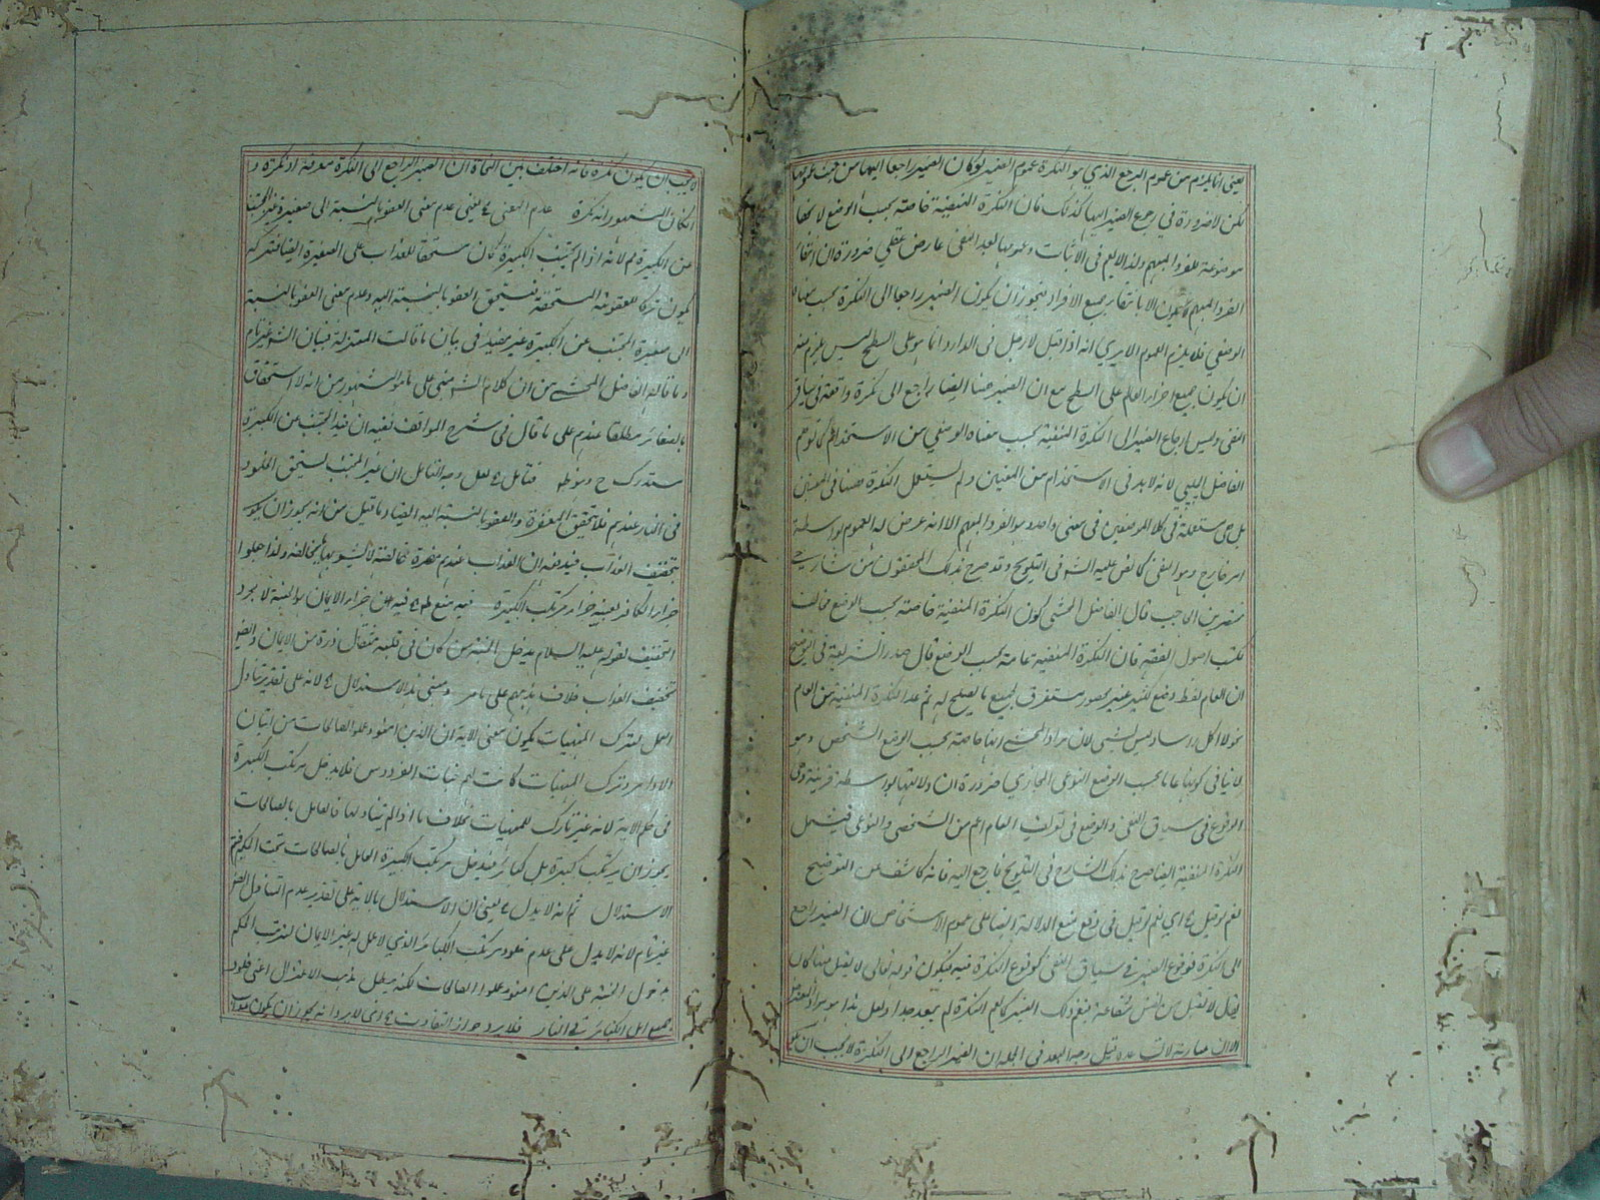 يعنى انما يلزم من عموم المرجع الذي هو النكرة عموم الضمير لو كان الضمير راجعا اليها من حيث عمومها
لكن لا ضرورة في رجع الضمير اليها كذلك فان النكرة المنفية خاصة بحسب الوضع لانها
موضوعة للفرد المبهم ولذا لا يعم في الاثبات وعمومها بعد النفي عارض عقلي ضرورة ان انتفاء
الفرد المبهم لا يكون الا بانتفاء جميع الافراد فيجوز ان يكون الضمير راجعا الى النكرة بحسب معناه
الوضعي فلا يلزم العموم الا يرى انه اذا قيل لا رجل في الدار وانما هو على السطح ليس يلزم منه
ان يكون جميع افراد العالم على السطح مع ان الضمير هنا ايضا راجع الى نكرة واقعة في سياق
النفي وليس ارجاع الضمير الى النكرة المنفية بحسب معناه الوضعي من الاستخدام كما توهم
الفاضل الچلپي لانه لا بد في الاستخدام من المعنيين ولم يستعمل النكرة ههنا في المعنيين
بل هي مستعملة في كلا الموضعين في معنى واحد وهو الفرد المبهم الا انه عرض له العموم بواسطة
امر خارج وهو النفي كما نص عليه الشه في التلويح وقد صرح بذلك المحققون من شارحي
مختصر ابن الحاجب قال الفاضل المحشي كون النكرة المنفية خاصة بحسب الوضع مخالف
لكتب اصول الفقه فان النكرة المنفية عامة بحسب الوضع قال صدر الشريعة في التوضيح
ان العام لفظ وضع لكثير غير محصور مستغرق لجميع ما يصلح له ثم عد النكرة المنفية من العام
نحو لا اكل وساد ليس بشي لان مراد المحشي انها خاصة بحسب الوضع الشخصي وهو
لا ينافي كونها عاما بحسب الوضع النوعي المجازي ضرورة ان دلالتها بواسطة قرينة وهي
الوقوع في سياق النفي والوضع في تعريف العام اعم من الشخصي والنوعي فيشمل
النكرة المنفية ايضا صرح بذلك الشارح في التلويح فارجع اليه فانه كاشف عن التوضيح
نعم لو قيل اه اي نعم لو قيل في دفع منع الدلالة ايضا على عموم الاشخاص لان الضمير راجع
الى النكرة فوقوع الضمير في سياق النفي كوقوع النكرة فيه فيكون قوله تعالى لا يقبل منها كان
يقال لا تقبل من نفس شفاعة فيعم ذلك الضمير كما يعم النكرة لم يبعد جدا ولعل هذا هو مراد المعترض
الا ان عبارته لا تساعده قيل وجه البعد في الجملة ان الضمير الراجع الى النكرة لا يجب ان يكون
لا يجب ان يكون نكرة فانه اختلف بين النحاة ان الضمير الراجع الى النكرة معرفة او نكرة وا
ن كان المشهور انه نكرة عدم المعنى اه يعني عدم معنى العفو بالنسبة الى صغيرة غير المجتنب
عن الكبيرة ثم لانه اذا لم يجتنب الكبيرة كان مستحقا للعذاب على الصغيرة ايضا فتركه
يكون تركا لعقوبته المستحقة فيتحقق العفو بالنسبة اليه وعدم معنى العفو بالنسبة
الى صغيرة المجتنب عن الكبيرة غير مفيد في بيان ما قالت المعتزلة فبيان الشه غير تام
وما قاله الفاضل المحشي من ان كلام الشه مبني على ما هو المشهور من انه لا استحقاق
بالصغائر مطلقا عندهم على ما قال في شرح المواقف ففيه ان قيد المجتنب عن الكبيرة
مستدرك ح فتامل اه لعل وجه التامل ان غير المجتنب يستحق الخلود
في النار عندهم فلا يتحقق المغفرة والعفو بالنسبة اليه ايضا وما قيل من انه يجوز ان يكون
بتخفيف العذاب فيدفعه ان العذاب عندهم مضرة خالصة لا يشوبها ما يخالفه ولذا جعلوا
جزاء الكافر بعينه جزاء مرتكب الكبيرة فيه منع ظ اه فيه ان جزاء الايمان هو الجنة لا مجرد
التخفيف لقوله عليه السلام يدخل الجنة من كان في قلبه مثقال ذرة من الايمان وايضا
تخفيف العذاب خلاف مذهبهم على ما مر ومبنى هذا الاستدلال اه لانه على تقدير تناول
العمل لترك المنهيات يكون معنى الاية ان الذين امنوا وعملوا الصالحات من اتيان
الاوامر وترك المنهيات كانت لهم جنات الفردوس فلا يدخل مرتكب الكبيرة
في حكم الاية لانه غير تارك للمنهيات بخلاف ما اذا لم يتناولها فالعامل بالصالحات
يجوز ان يرتكب كبيرة بل كبائر فيدخل مرتكب الكبيرة العامل بالصالحات تحت الحكم فيتم
الاستدلال ثم انه لا يدل اه يعني ان الاستدلال بالاية على تقدير عدم التناول ايضا
غير تام لانه لا يدل على عدم خلود مرتكب الكبائر الذي لا عمل له غير الايمان لترتب الحكم
بدخول الجنة على الذين امنوا وعملوا الصالحات لكنه يبطل مذهب الاعتزال اعني خلود
جميع اهل الكبائر في النار فلا يرد جواز التفاوت اه اي لا يرد انه يجوز ان يكون عذاب